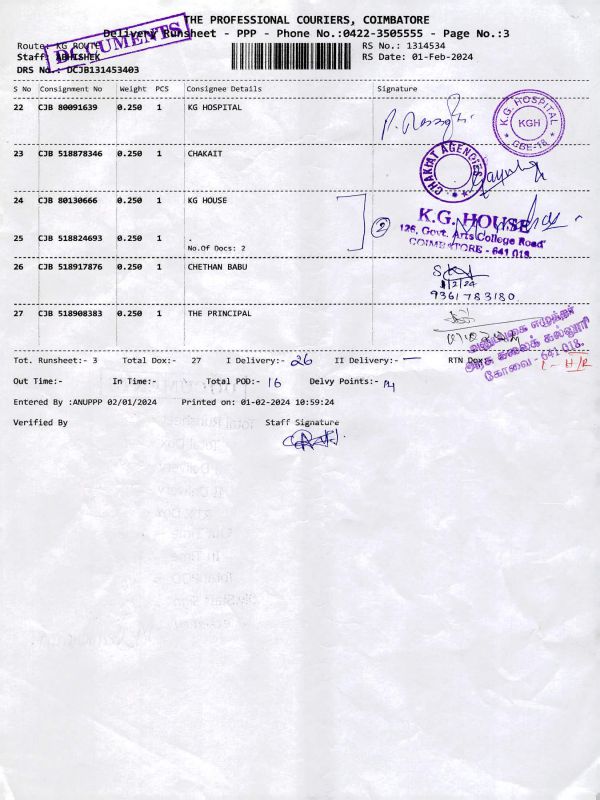 THE PROFESSIONAL COURIERS, COIMBATORE
Delivery Runsheet - PPP - Phone No.:0422-3505555 - Page No.:3
DOCUMENTS
Route: KG ROUTE
RS No.: 1314534
Staff: ABHISHEK
RS Date: 01-Feb-2024
DRS No.: DCJB131453403
S No Consignment No Weight PCS Consignee Details Signature
22 CJB 80091639 0.250 1 KG HOSPITAL
K.G. HOSPITAL
KGH
CBE-18
23 CJB 518878346 1 0.250 1 CHAKAIT
CHAKIAT AGENCIES
24 CJB 80130666 0.250 1 KG HOUSE
2
K.G. HOUSE
126, Govt. Arts College Road
COIMBATORE - 641 018.
25 CJB 518824693 0.250 1 .
No.Of Docs: 2
26 CJB 518917876 0.250 1 CHETHAN BABU
1/2/24
9361783180
27 CJB 518908383 0.250 1 THE PRINCIPAL
அரசு கலைக் கல்லூரி
கோவை - 641 018.
Tot. Runsheet:- 3 Total Dox:- 27 I Delivery:- 26 II Delivery:- — RTN Dox:- 1 - H/R
Out Time:- In Time:- Total POD:- 16 Delvy Points:- 14
Entered By :ANUPPP 02/01/2024 Printed on: 01-02-2024 10:59:24
Verified By Staff Signature